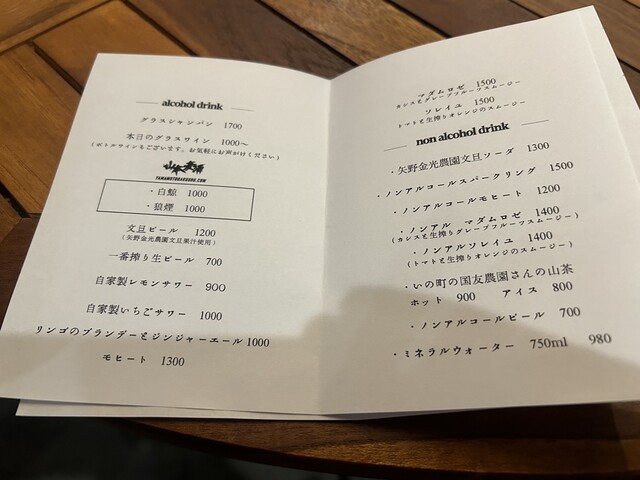 alcohol drink
グラスシャンパン 1700
本日のグラスワイン 1000〜
(ボトルワインもございます。お気軽にお声がけください)
YAMAMOTOBARKUHO.COM
・白鯨 1000
・狼煙 1000
文旦ビール 1200
(矢野金光農園文旦果汁使用)
一番搾り生ビール 700
自家製レモンサワー 900
自家製いちごサワー 1000
リンゴのブランデーとジンジャーエール 1000
モヒート 1300
マダムロゼ 1500
カシスとグレープフルーツスムージー
ソレイユ 1500
トマトと生搾りオレンジのスムージー
non alcohol drink
・矢野金光農園文旦ソーダ 1300
・ノンアルコールスパークリング 1500
・ノンアルコールモヒート 1200
・ノンアル マダムロゼ 1400
(カシスと生搾りグレープフルーツスムージー)
・ノンアルソレイユ 1400
(トマトと生搾りオレンジのスムージー)
・いの町の国友農園さんの山茶
ホット 900 アイス 800
・ノンアルコールビール 700
・ミネラルウォーター 750ml 980